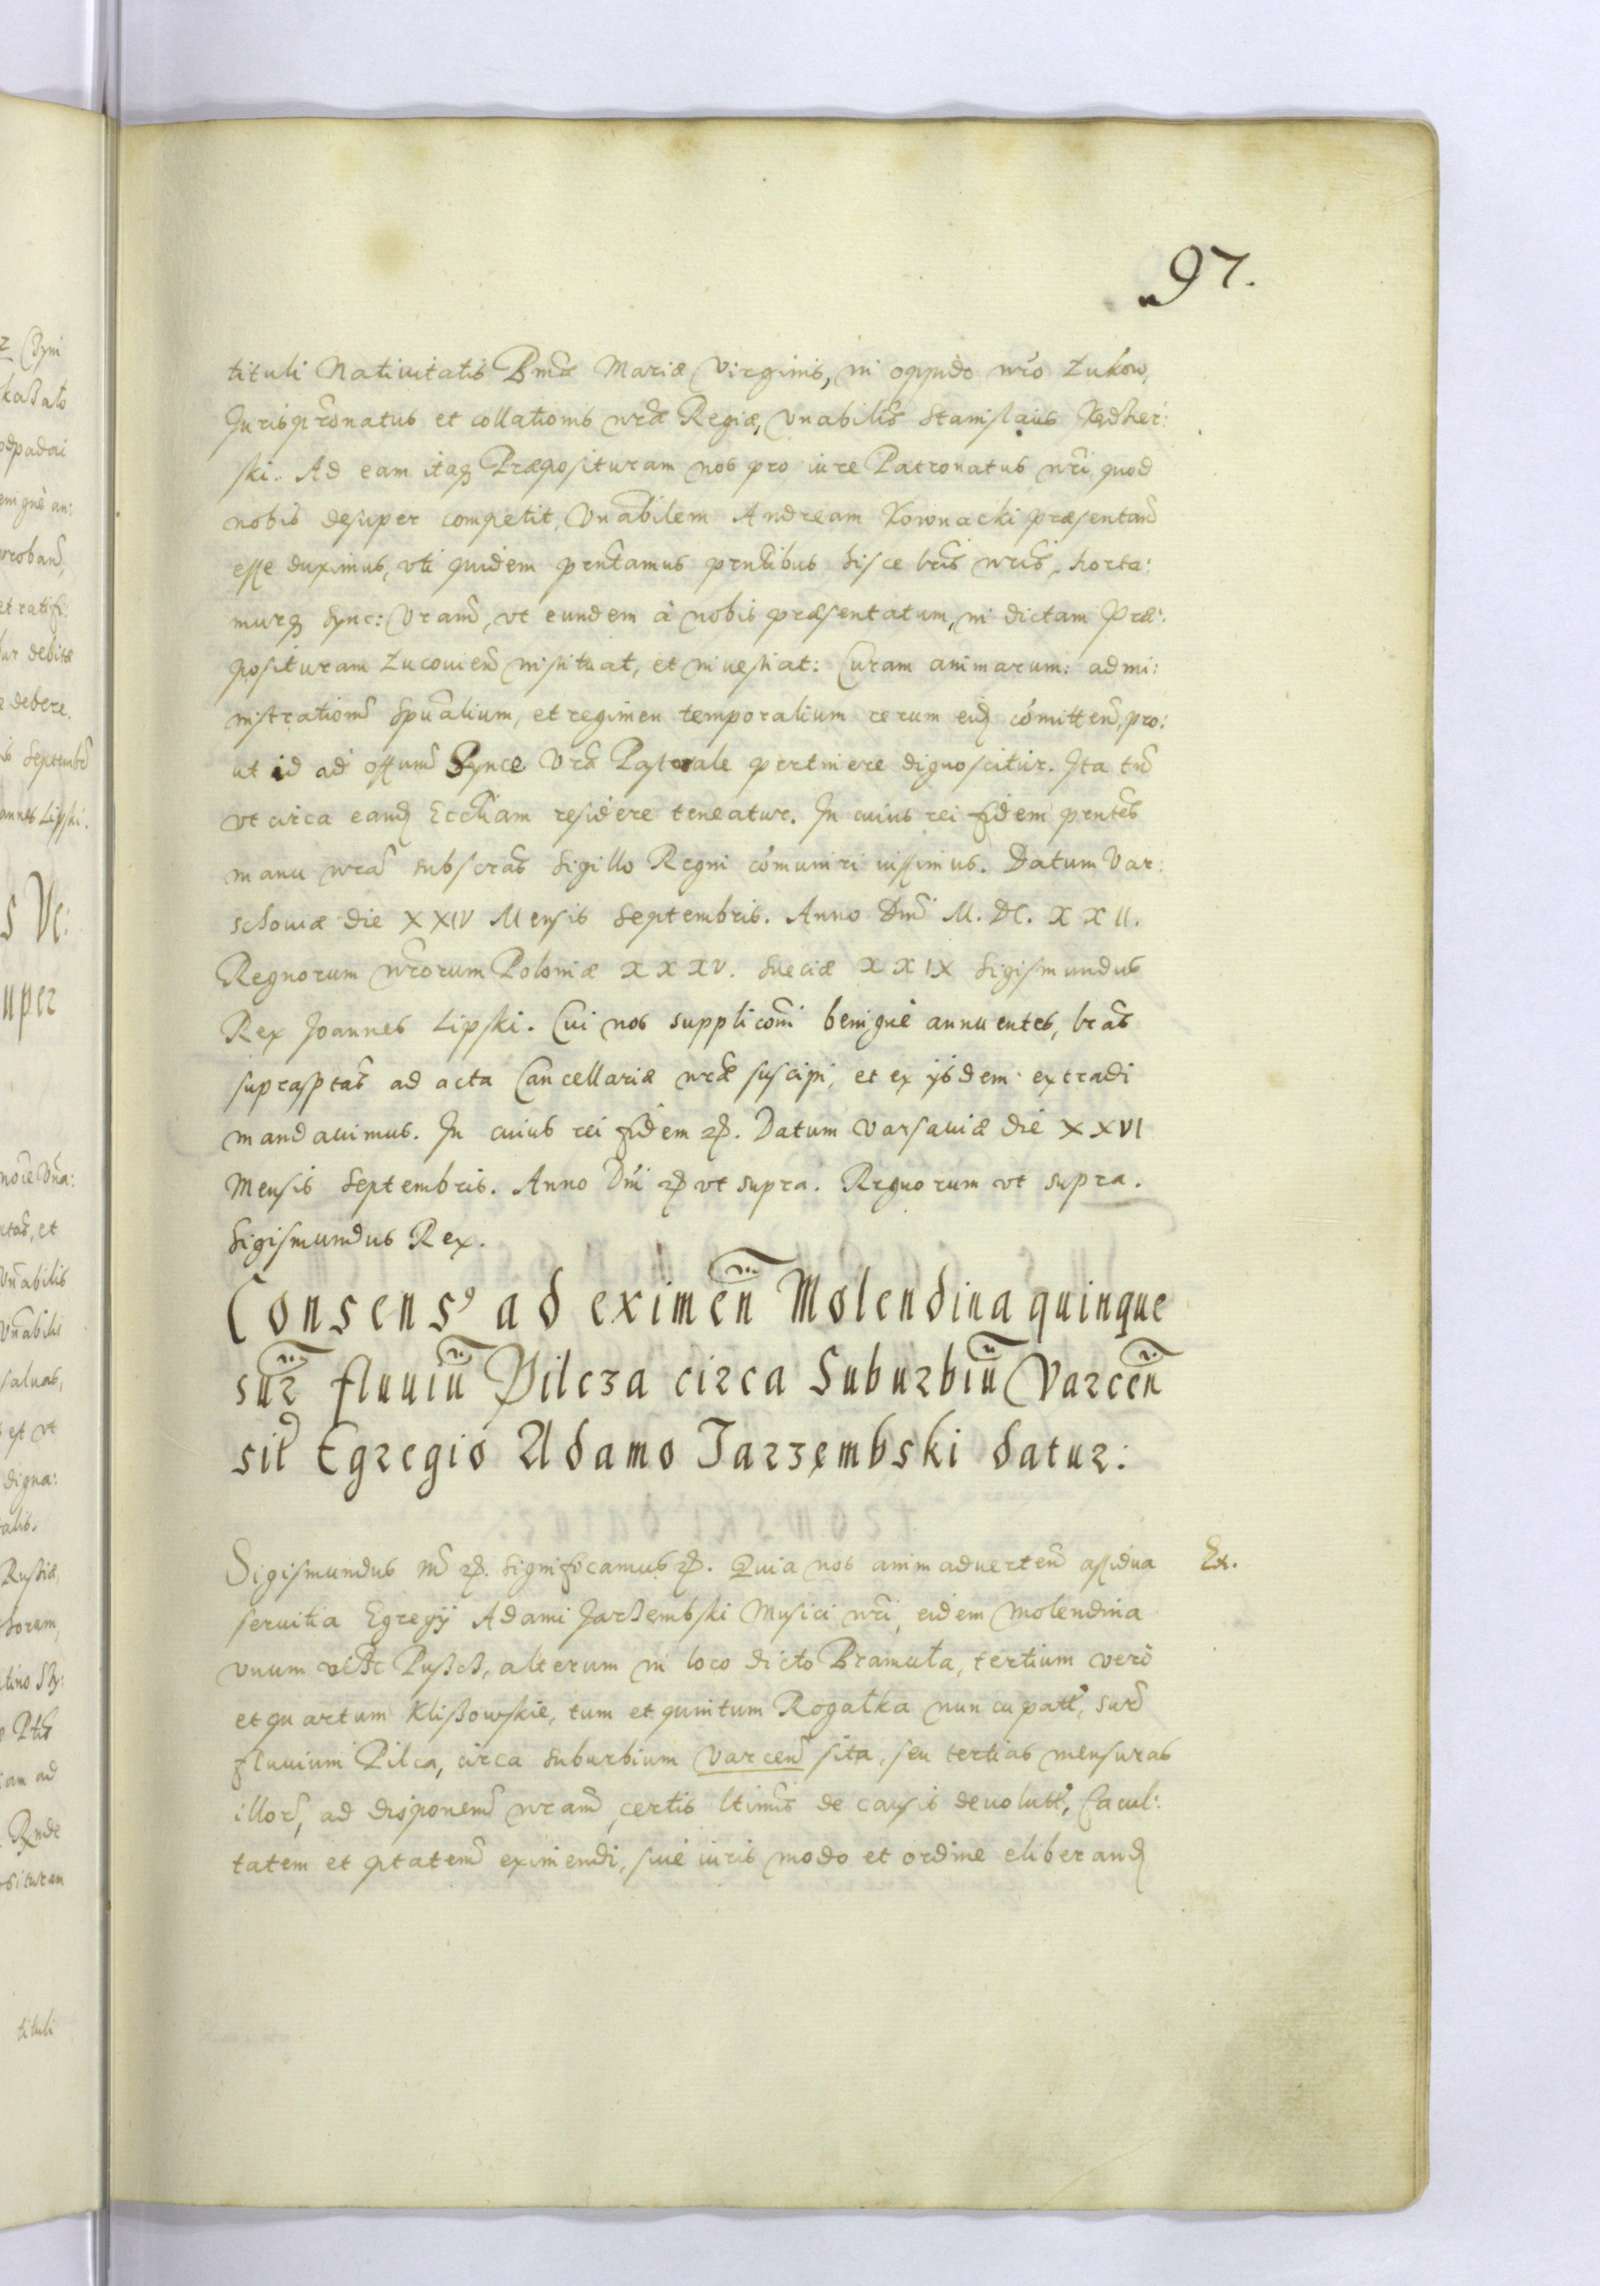 97.
tituli Natiuitatis Bmæ Mariæ Virginis, in oppido nro Zukow,
Juris pronatus et collationis nræ Regiæ, Vnabilis Stanislaus
ski. Ad eam itaq Præposituram nos pro iure Patronatus nri, quod
nobis desuper competit, Vnabilem Andream Kownacki præsentand
esse duximus, vti quidem pntamus pntibus hisce lris nris, horta:
murq Sync: Vram, vt eundem à nobis præsentatum, in dictam Præ:
posituram Zucouien instituat, et inuestiat: Curam animarum: admi:
nistrationem Spualium, et regimen temporalium rerum eid comitten, pro:
ut id ad offum Synce Vræ Pastorale pertinere dignoscitur. Ita tn
vt circa eand Ecclliam residere teneatur. In cuius rei fidem pntes
manu nra subscras Sigillo Regni comuniri iussimus. Datum Var:
schouiæ die XXIV Mensis Septembris. Anno Dni M. DC. XXII.
Regnorum nrorum Poloniæ XXXV. Sueciæ XXIX Sigismundus
Rex Joannes Lipski. Cui nos supplicōni benignè annuentes, lras
suprasptas ad acta Cancellariæ nræ suscipi, et ex ijsdem extradi
mandauimus. In cuius rei fidem etc. Datum Varsauiæ die XXVI
Mensis Septembris. Anno Dni etc vt supra. Regnorum vt supra.
Sigismundus Rex.
Consens9 ad eximen Molendina quinque
sur fluuiū Pilcza circa Suburbiū Varcen
sit Egregio Adamo Jarzembski datur:
Sigismundus etc. Significamus etc. Quia nos animaduerten assidua Ex.
seruitia Egregij Adami Jarzembski Musici nri, eidem molendina
vnum alterum in loco dicto Bramuła, tertium verò
et quartum Kliszowskie, tum et quintum Rogałka nuncupatt, sur
fluuium Pilca, circa Suburbium Varcen sita, seu tertias mensuras
illor, ad disponem nram, certis ltimis de causis deuolutt, facul:
tatem et ptatem eximendi, siue iuris modo et ordine eliberand